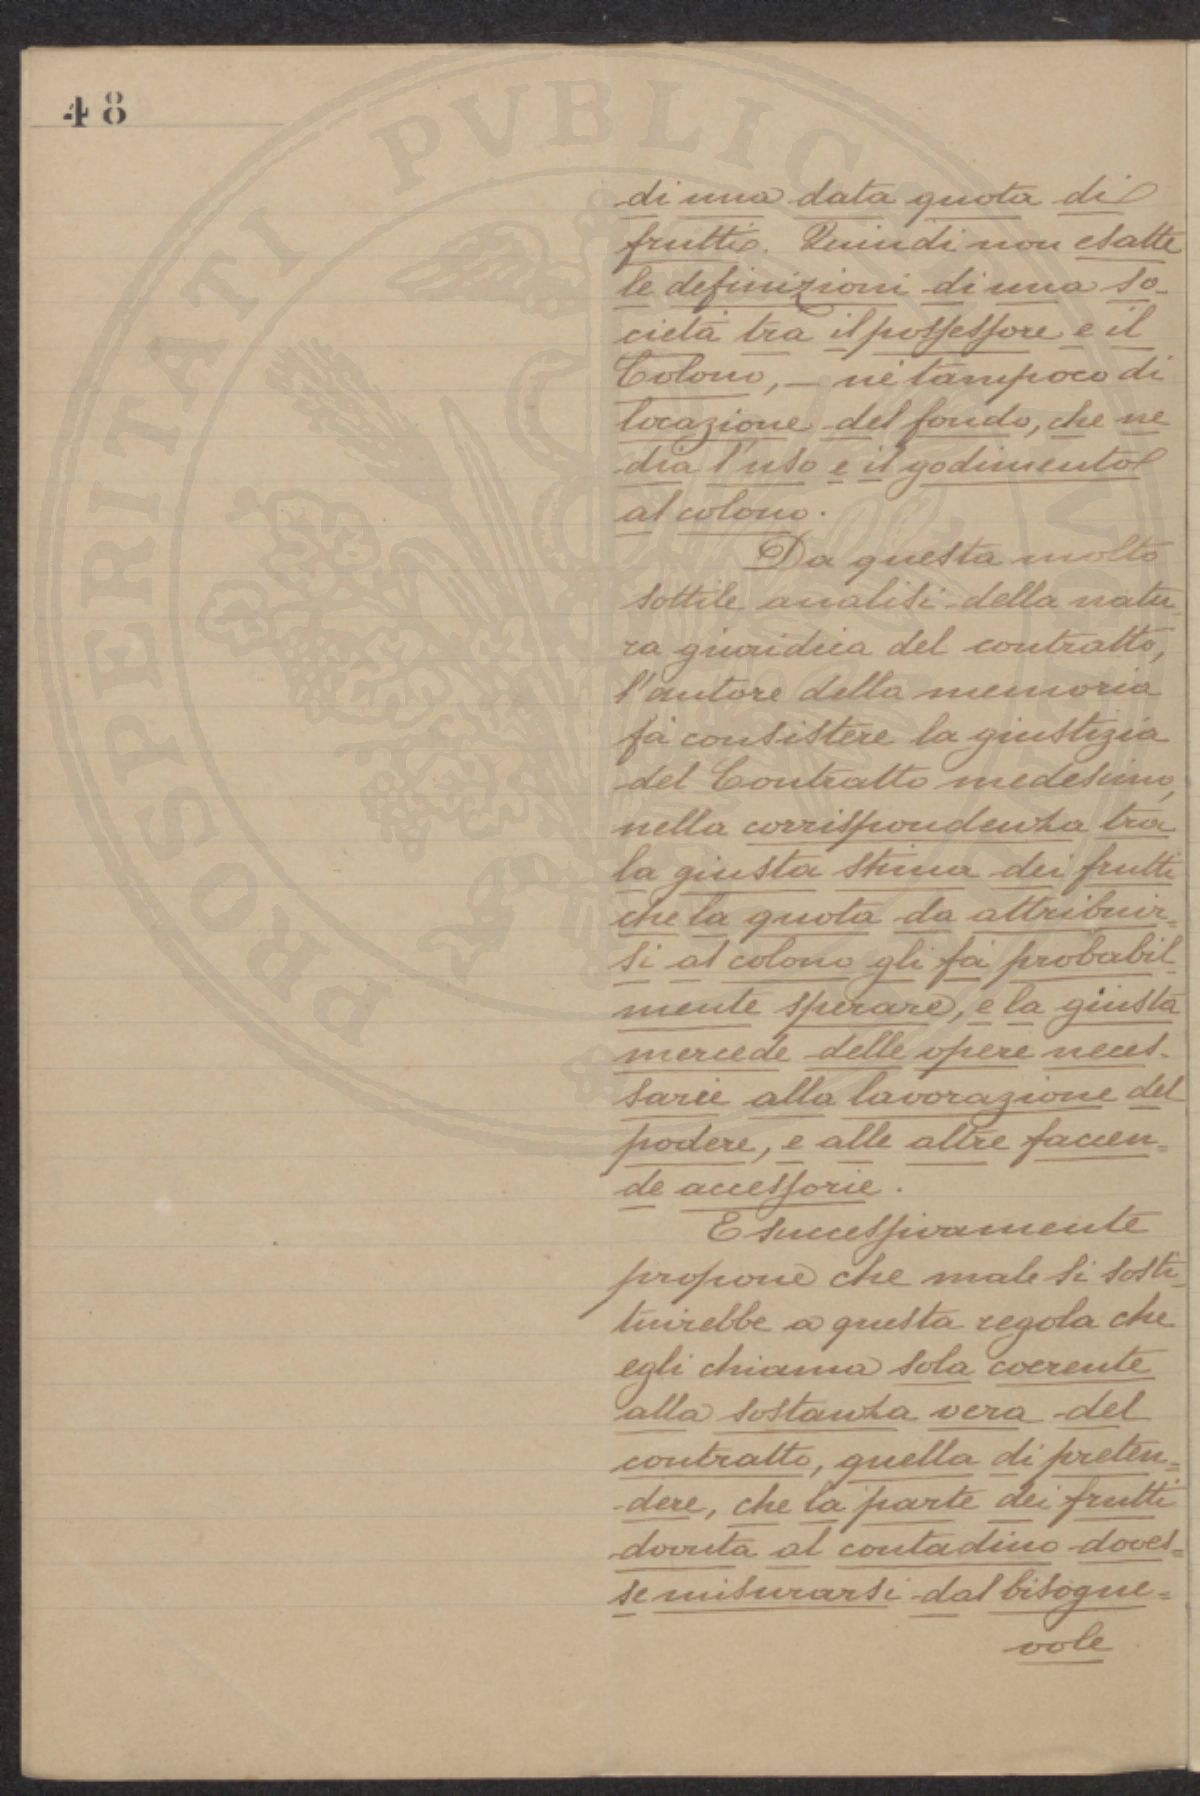 48
PROSPERITATI PVBLIC
di una data quota di
frutti. Quindi non esatte
le definizioni di una so-
cietà tra il possessore e il
Colono, - nè tampoco di
locazione del fondo, che ne
dia l'uso e il godimento
al colono.
Da questa molto
sottile analisi della natu-
ra giuridica del contratto,
l'autore della memoria
fà consistere la giustizia
del Contratto medesimo,
nella corrispondenza tra
la giusta stima dei frutti
che la quota da attribuir=
si al colono gli fà probabil-
mente sperare, e la giusta
mercede delle opere neces-
sarie alla lavorazione del
podere, e alle altre faccen=
de accessorie.
E successivamente
propone che male si sosti-
tuirebbe a questa regola che
egli chiama sola coerente
alla sostanza vera del
contratto, quella di preten=
dere, che la parte dei frutti
dovuta al contadino doves=
se misurarsi dal bisogne=
vole